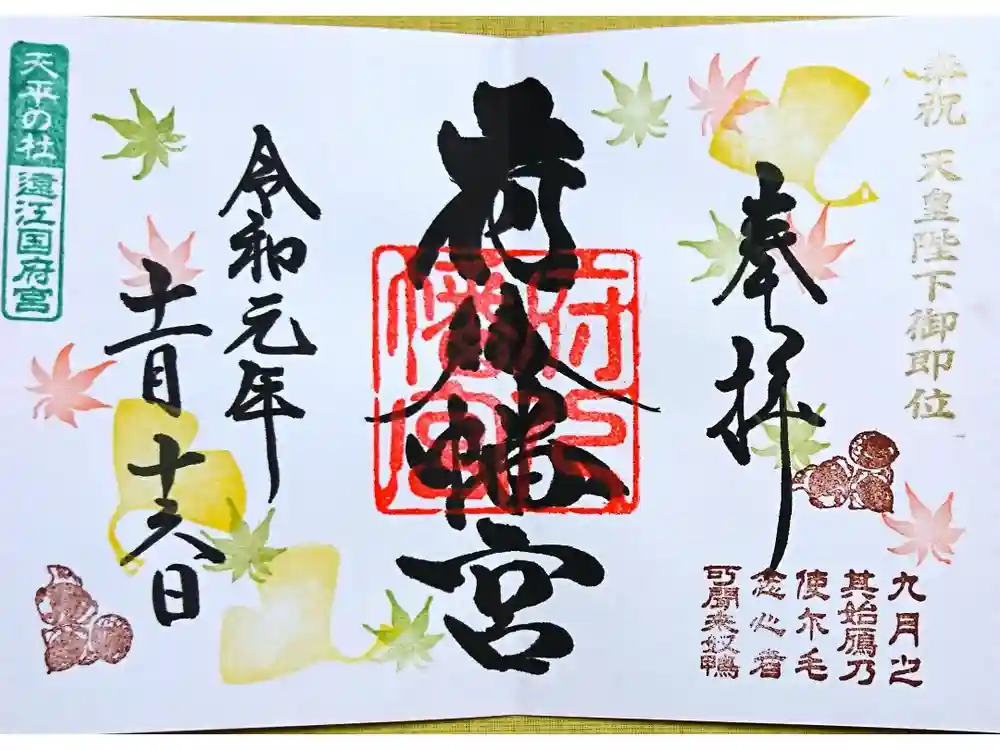 奉祝 天皇陛下御即位
奉拝
九月之
其始鴈乃
使尓毛
念心者
可聞来奴鴨
府八幡宮
府八
幡宮
令和元年
十一月十六日
天平の社 遠江国府宮